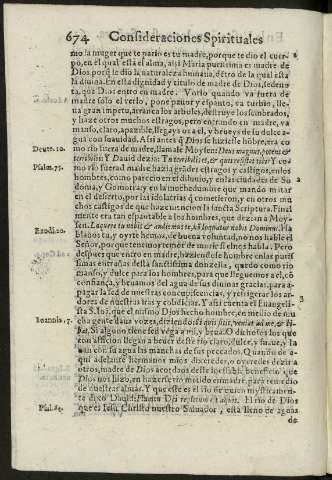 674 Consideraciones Spirituales
mo la muger que te pario es tu madre, porque te dio el cuer-
po, en el qual està el alma, assi Maria purissima es madre de
Dios porq̃ le dio la naturaleza humana, dẽtro de la qual esta
la diuina. En esta dignidad y titulo de madre de Dios,
que Dios entro en madre. Vn rio quando va fuera de
madre solo el verlo, pone pauor y espanto, va turbio, lle-
ua gran impetu, arranca los arboles, destruye los sembrados,
y haze otros muchos estragos, pero entrando en madre, va
manso, claro, apazible, llegays os a el, y beueys de su dulce a-
gua con suauidad. Assi antes q̃ Dios se hiziesse hõbre, era co
Deute. 10. mo rio fuera de madre, llamale Moysen: Deus magnus, potens &
terribilis. Y Dauid dezia: Tu terribilis es, & quis resistet tibi? Y co
Psalm. 75. mo rio fuera de madre hazia grãdes estragos y castigos, en los
hombres, como parecio en el diluuio, y en las ciudades de So
doma, y Gomorra, y en la mochedumbre que mando matar
en el desierto, por las idolatrias q̃ cometieron, y en otros mu
chos castigos de que haze mencion la sancta Scriptura. Final
mente era tan espantable a los hombres, que dezian a Moy-
Exodi. 20. sen, Loquere tu nobis & audiemus te, nõ loquatur nobis Dominus. Ha
blanos tu, y oyrte hemos, de buena voluntad, no nos hable el
Señor, por que tenemos temor de morir si el nos habla. Pero
despues que entro en madre, haziendose hombre en las puris
simas entrañas desta sanctissima donzella, quedo como rio
manso, y dulce para los hombres, para que lleguemos a el, cõ
confiança, y beuamos del agua de sus diuinas gracias, para a-
pagar la sed de nuestras concupiscencias, y refrigerar los ar-
dores de nuestras iras y codicias. Y assi cuenta el Euangelis-
ta S. Iuã, que el mismo Dios hecho hombre, en medio de mu
Ioannis. 7. cha gente daua vozes, diziendo: Si quis sitit, veniat ad me, & bi-
bat. Si alguno tiene sed vẽga a mi, y beua. O dichosos los que
con aficion llegan a beuer deste rio claro, dulce, y suaue, y la
uan con su agua las manchas de sus peccados. Quando de a-
qui adelante hermanos mios oyeredes dezir a
otros, madre de Dios acordaos deste inefable beneficio que
Dios nos hizo, en hazerse
de nuestras almas. Y que este es el rio de quien mysticamente
dixo Dauid: Flumen Dei repletum est aquis. El rio de Dios
Psal. 64. que es Iesu Christo nuestro Saluador, està lleno de aguas
de